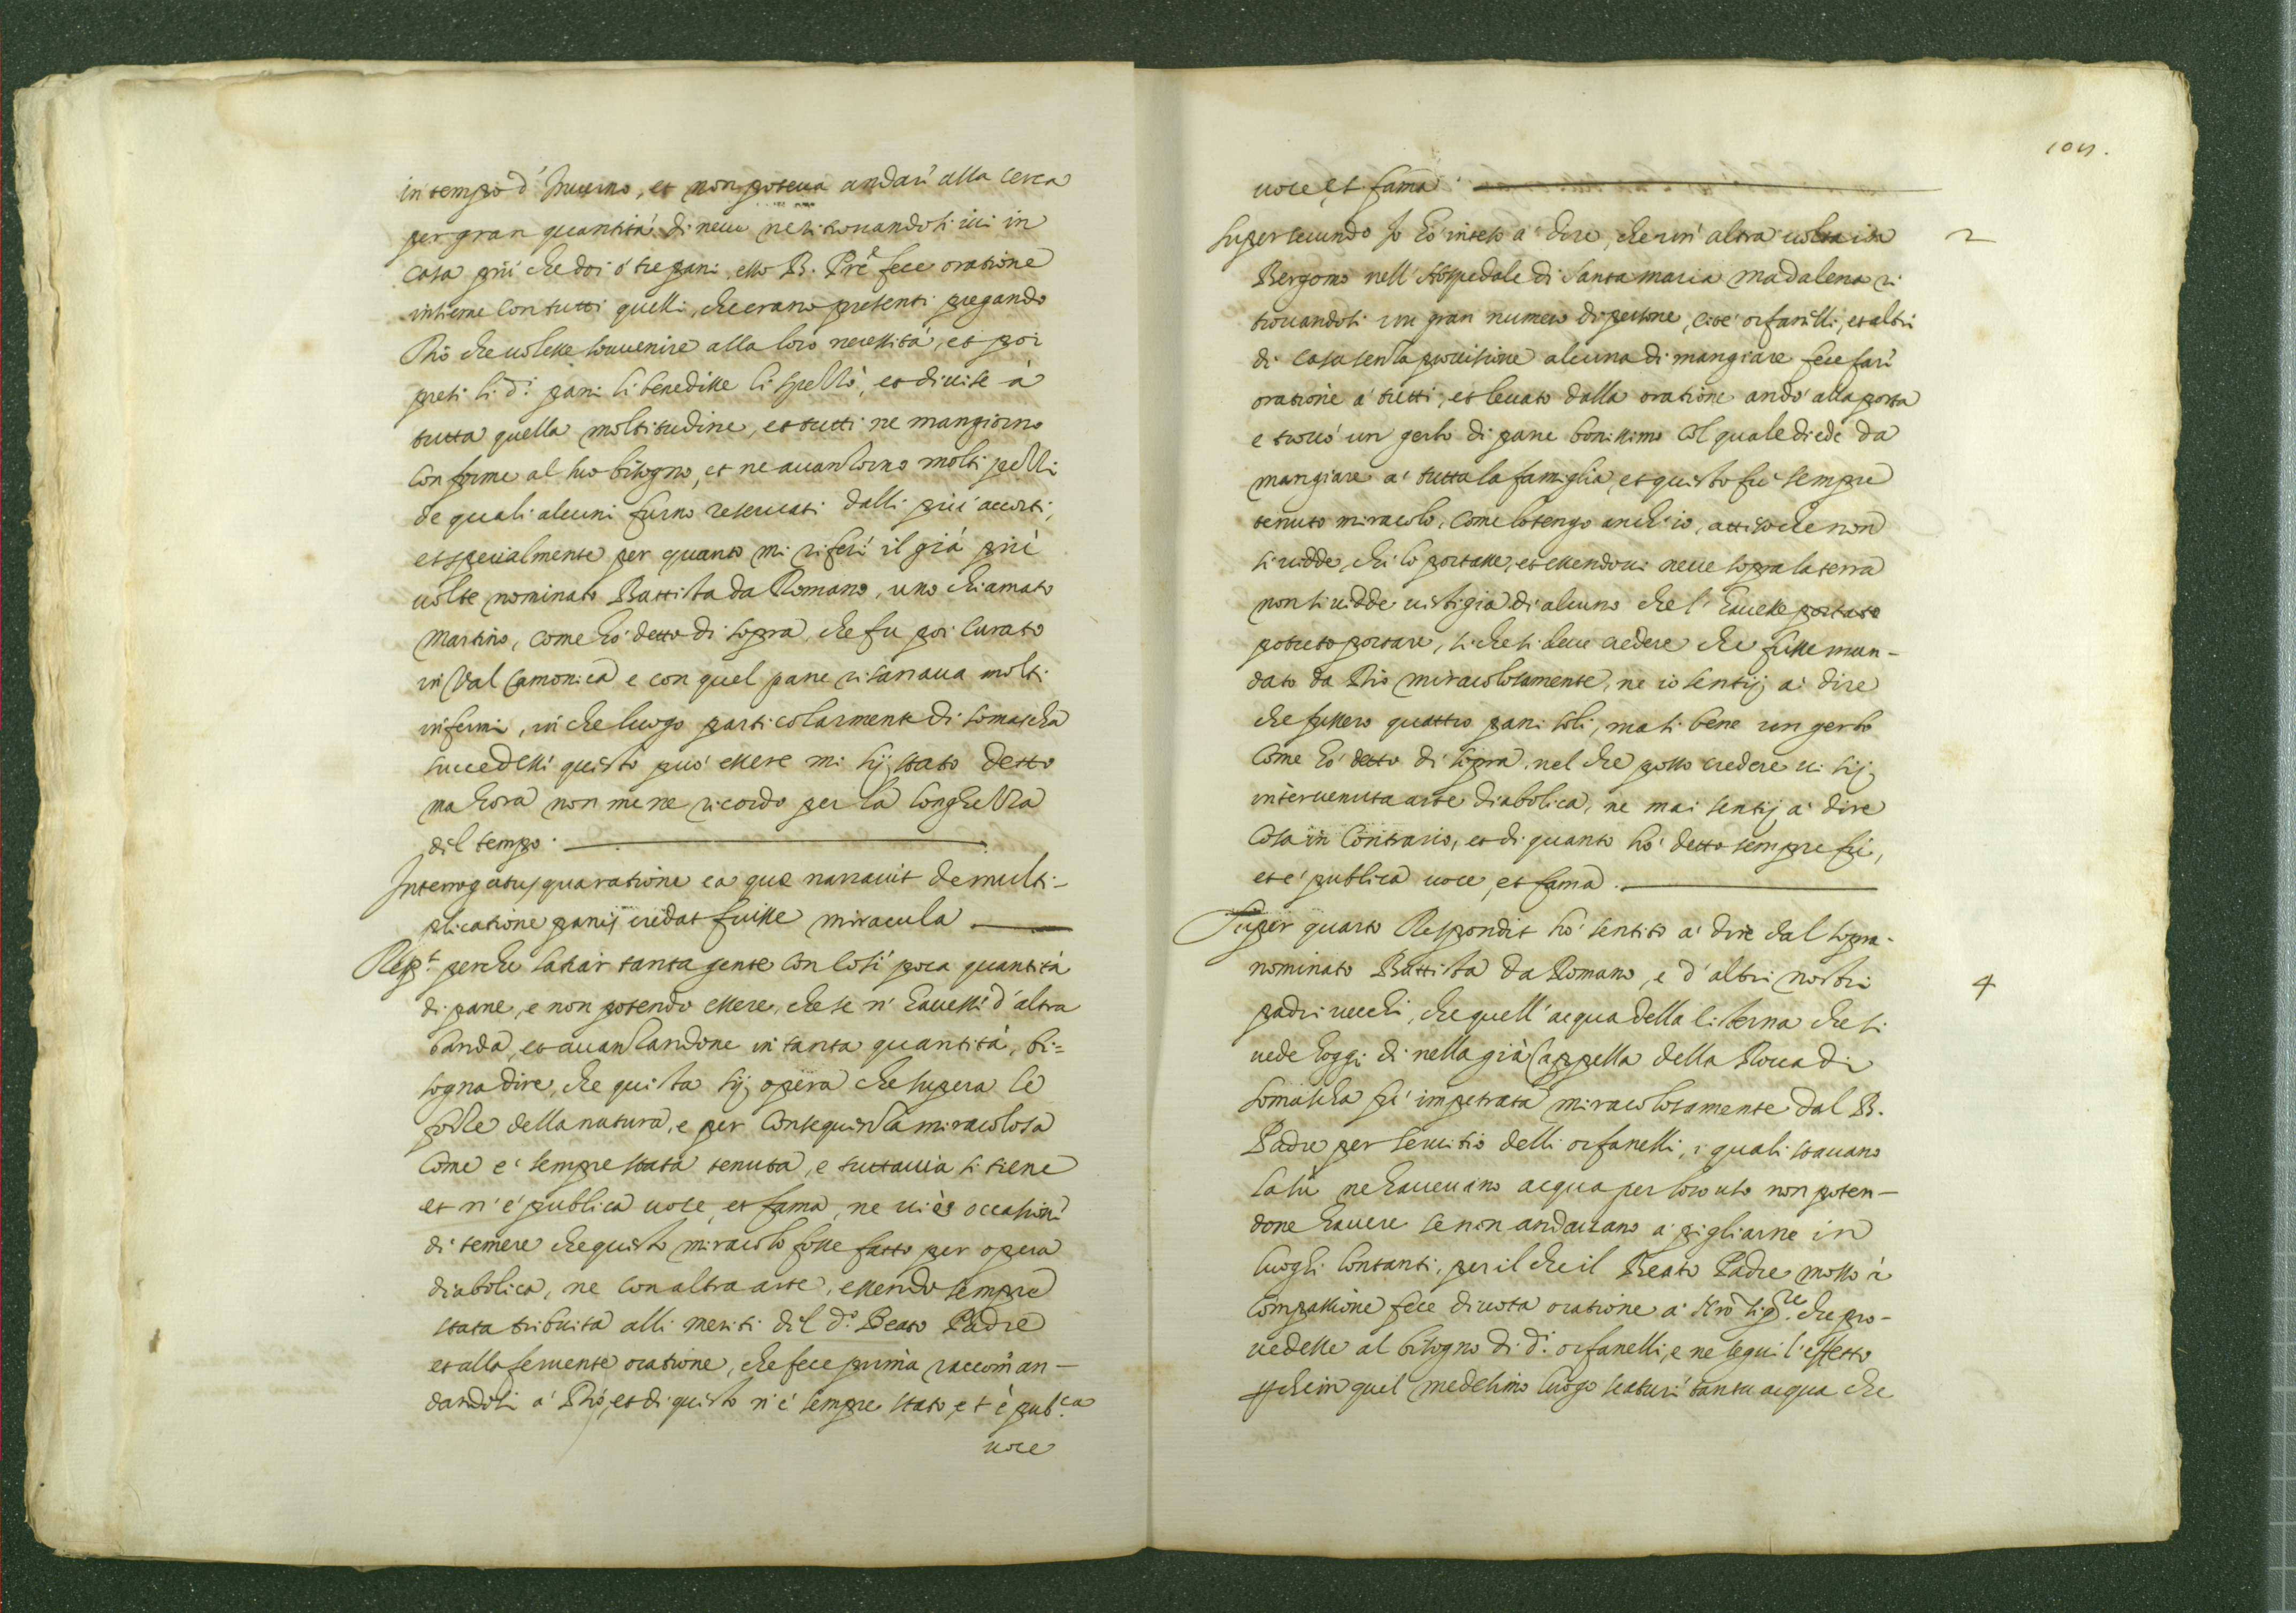 in tempo d'Inuerno, et non poteua andari alla cerca
per gran quantità di neue ne ritrouandosi iui in
casa più che doi ò tre pani esso B. Prẽ fece oratione
insieme con tutti quelli, che erano presenti pregando
Dio che uolesse souuenire alla loro necessità, et poi
presi li d.i pani li benedisse li spezzò, et diuise à
tutta quella moltitudine, et tutti ne mangiorno
conforme al suo bisogno, et ne auanzorno molti pezzi
de quali alcuni furno reseruati dalli più accorti,
et specialmente per quanto mi riferì il già più
uolte nominato Battista da Romano, uno chiamato
Martino, come hò detto di sopra che fu poi Curato
in Val Camonica e con quel pane risanaua molti
infermi, in che luogo particolarmente di Somascha
succedessi questo può essere mi sij stato detto
ma hora non me ne ricordo per la longhezza
dil tempo.
Interrogatus qua ratione ea que narrauit de multi-
plicatione panis credat fuisse miracula
Resp.t perche satiar tanta gente con così poca quantità
di pane, e non potendo essere, che se n'hauessi d'altra
banda, et auanzandone in tanta quantità, bi=
sogna dire, che questa sij opera che supera le
forze della natura, e per consequenza miracolosa
come è sempre stata tenuta, e tuttauia si tiene
et n'è publica uoce, et fama, ne ui è occasioni
di temere che questo miracolo fosse fatto per opera
diabolica, ne con altra arte, essendo sempre
stata tribuita alli meriti dil d.o Beato Padre
et alla feruente oratione, che fece prima raccoman-
dandosi à Dio, et di questo n'è sempre stato, et è pub.ca
uoce
104.
uoce, et fama.
Super secundo Io hò inteso à dire, che un'altra uolta in
2
Bergomo nell'Hospedale di santa maria Madalena ri
trouandosi un gran numero di persone, cioè orfanelli, et altri
di casa senza prouisione alcuna di mangiare fece fari
oratione à tutti, et leuato dalla oratione andò alla porta
e trouò un gerlo di pane bonissimo col quale diede da
mangiare à tutta la famiglia, et questo fù sempre
tenuto miracolo, come lo tengo anch'io, attiso che non
si uidde, chi lo portasse, et essendoui neue sopra la terra
non si uidde uistigia di alcuno che l'hauesse portato
potuto portare, si che si deue credere che fusse man-
dato da Dio miracolosamente, ne io sentij à dire
che fussero quattro pani soli, ma si bene un gerlo
come hò detto di sopra, nel che posso credere ui sij
interuenuta arte diabolica, ne mai sentij à dire
cosa in contrario, et di quanto hò detto sempre fù,
et è publica uoce, et fama.
Super quarto Respondit hò sentito à dire dal sopra-
nominato Battista da Romano, e d'altri nostri
4
padri uecchi, che quell'acqua della cisterna che si
uede hoggi dì nella già Cappella della Rocca di
Somascha fù impetrata miracolosamente dal B.
Padre per seruitio delli orfanelli, i quali stauano
lasù ne haueuano acqua per loro uso non poten-
done hauere se non andauano à pigliarne in
luoghi lontani, per il che il Beato Padre mosso à
compassione fece diuota oratione à Nrõ Sig.re che pro-
uedesse al bisogno di d.i orfanelli, e ne seguì l'effetto
che in quel medesimo luogo scaturì tanta acqua che